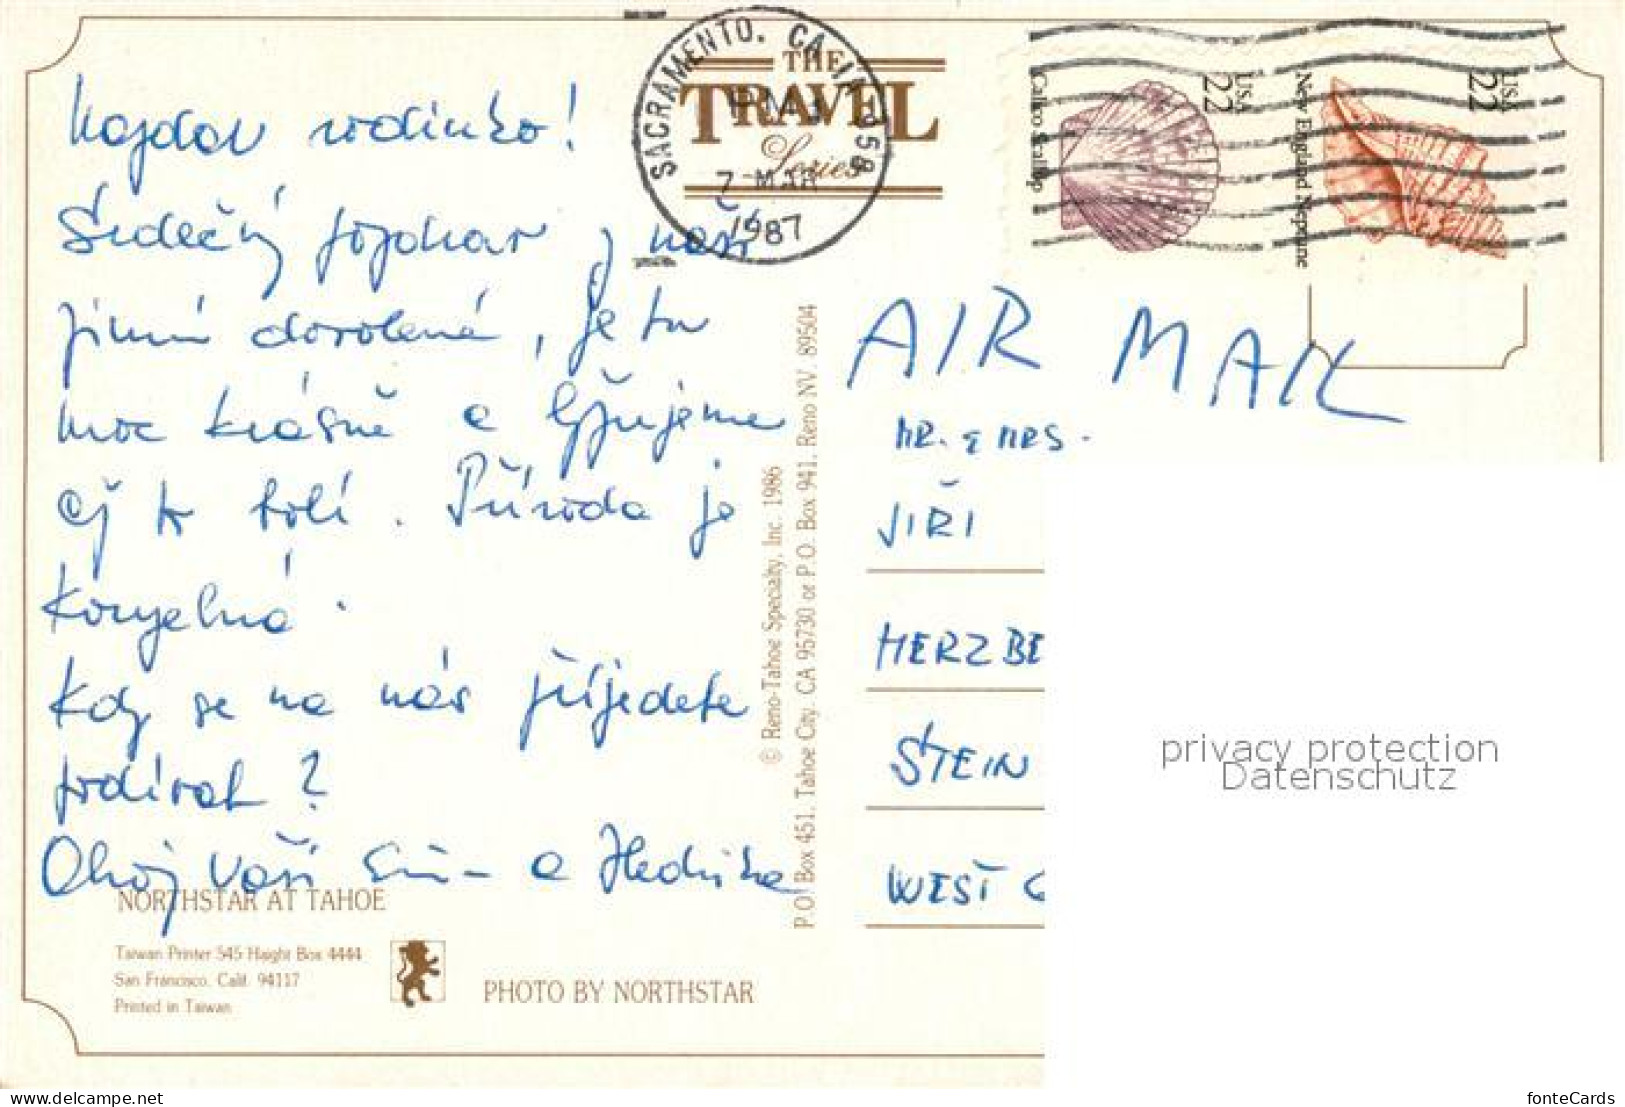 SACRAMENTO, CA
PM
7 MAR
1987
THE
TRAVEL
Series
USA
22
Calico Scallop
USA
22
New England Neptune
rodinko!
Srdečný pozdrav z naší
zimní dovolené, je tu
moc krásně a lyžujeme
až to bolí. Příroda je
kouzelná.
Kdy se na nás přijedete
podívat?
Ahoj Vaši a Hedvika
© Reno-Tahoe Specialty, Inc. 1986
P.O. Box 451, Tahoe City, CA 95730 or P.O. Box 941, Reno NV. 89504
AIR MAIL
MR. & MRS.
JIŘI
HERZBE
STEIN
WEST G
NORTHSTAR AT TAHOE
Taiwan Printer 545 Haight Box 4444
San Francisco, Calif. 94117
Printed in Taiwan
PHOTO BY NORTHSTAR
privacy protection
Datenschutz
www.delcampe.net
fonteCards